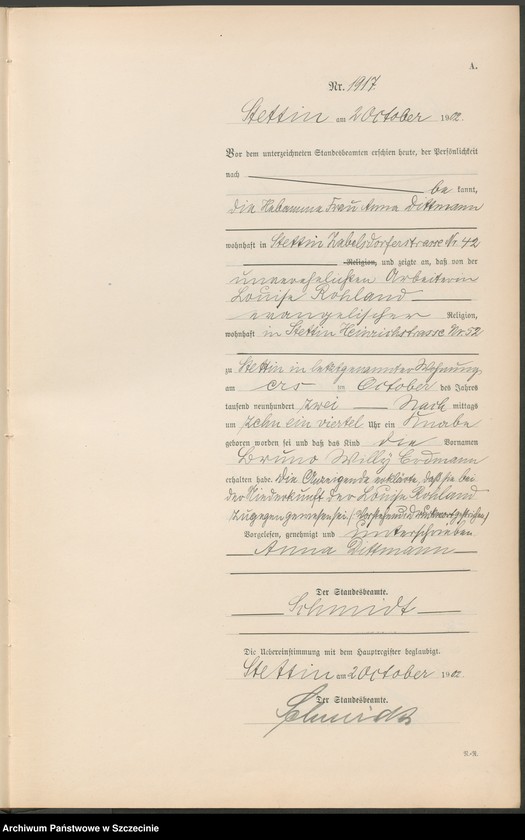 A.
Nr. 1917.
Stettin am 2 October 1902.
Vor dem unterzeichneten Standesbeamten erschien heute, der Persönlichkeit
nach
be kannt,
die Hebamme Frau Anna Dittmann
wohnhaft in Stettin Zabelsdorferstrasse Nr. 42
Religion, und zeigte an, daß von der
unverehelichten Arbeiterin
Louise Rohland
evangelischer Religion,
wohnhaft in Stettin Heinrichstrasse Nr 52
zu Stettin in letztgenannter Wohnung
am October des Jahres
tausend neunhundert zwei Nach mittags
um zehn ein viertel Uhr ein Knabe
geboren worden sei und daß das Kind die Vornamen
Bruno Willy Erdmann
erhalten habe. Die Anzeigende erklärte, daß sie bei
der Niederkunft der Louise Rohland
zugegen gewesen sei. (Vorstehend Druckwort gestrichen)
Vorgelesen, genehmigt und unterschrieben
Anna Dittmann
Der Standesbeamte.
Schmidt
Die Uebereinstimmung mit dem Hauptregister beglaubigt.
Stettin am 2 October 1902.
Der Standesbeamte.
Schmidt
Archiwum Państwowe w Szczecinie